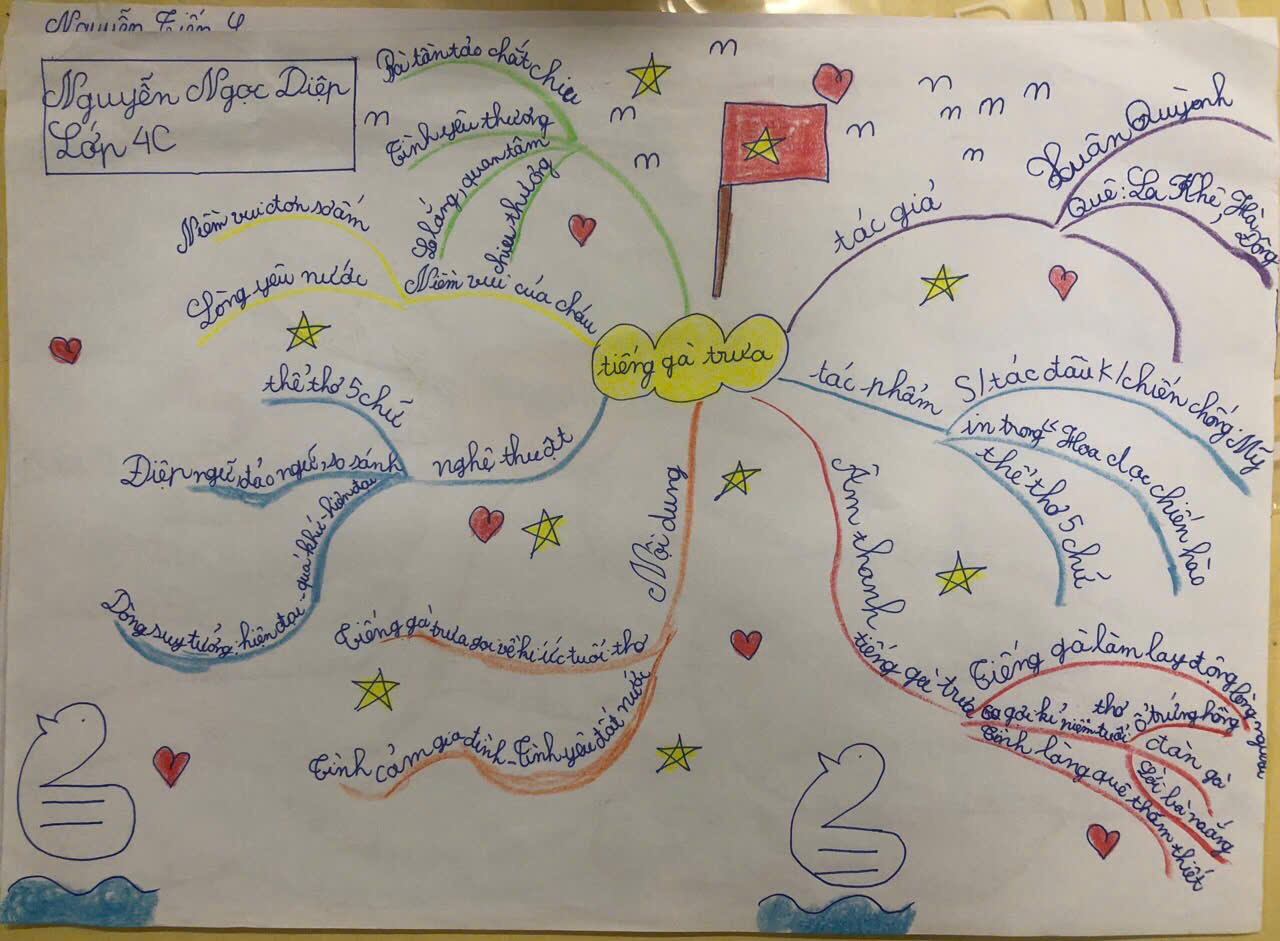 Nguyễn Tiến 4
Nguyễn Ngọc Diệp
Lớp 4C
Bà tần tảo chắt chiu
Tình yêu thương
Lo lắng, quan tâm
chiu thưởng
Niềm vui đơn sơ ấm
Lòng yêu nước
Niềm vui của cháu
tiếng gà trưa
tác giả
Xuân Quỳnh
Quê: La Khê, Hà Đông
tác phẩm
S/tác đầu k/chiến chống Mỹ
in trong "Hoa dọc chiến hào
thể thơ 5 chữ
thể thơ 5 chữ
Điệp ngữ, đảo ngữ, so sánh
Dòng suy tưởng: hiện đại - quá khứ - hiện đại
nghệ thuật
Nội dung
Tiếng gà trưa gọi về kí ức tuổi thơ
Tình cảm gia đình - Tình yêu đất nước
Âm thanh tiếng gà trưa
Tiếng gà làm lay động lòng người
gợi kỉ niệm tuổi thơ
Ổ trứng hồng
đàn gà
Lời bà mắng
Tình làng quê thắm thiết